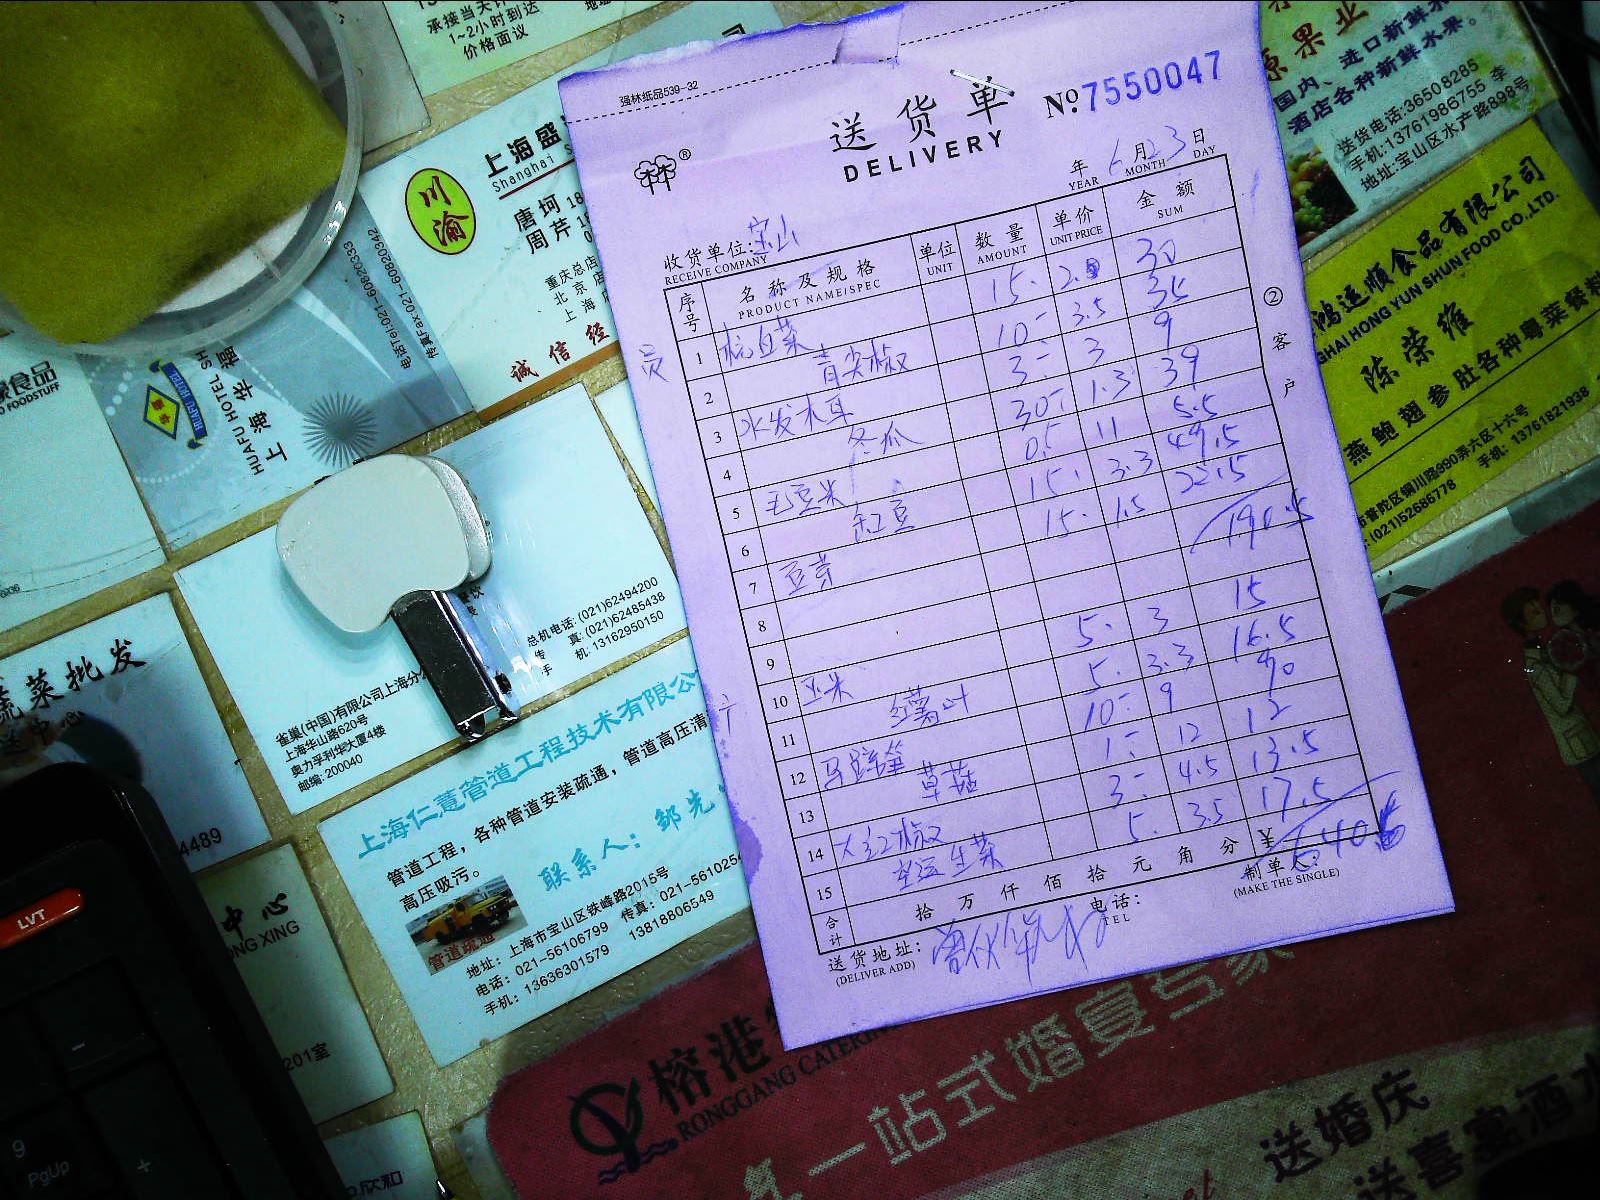 承接当天
1~2小时到达
价格面议
川渝
上海盛
Shanghai S
唐坷 18
周芹
重庆总店
北京店
上海
诚信经
电话Tel:021-60820333
传真Fax:021-60820342
HUAFU HOTEL SH
上海华
食品
FOODSTUFF
总机电话: (021)62494200
传 真: (021)62485438
手 机: 13162950150
雀巢(中国)有限公司上海分
上海华山路620号
奥力孚利华大厦4楼
邮编: 200040
蔬菜批发
4489
中心
ONG XING
201室
欣和
LVT
9
PgUp
+
上海仁薏管道工程技术有限公
管道工程，各种管道安装疏通，管道高压清
高压吸污。
联系人: 邹先
管道疏通
地址: 上海市宝山区铁峰路2015号
电话: 021-56106799 传真: 021-5610254
手机: 13636301579 13818806549
强林纸品539-32
送货单
DELIVERY
No.7550047
年 6月23日
YEAR MONTH DAY
收货单位: 宝山
RECEIVE COMPANY
序号 名称及规格 单位 数量 单价 金额
PRODUCT NAME/SPEC UNIT AMOUNT UNIT PRICE SUM
1 杭白菜 15. 2. 30
2 青尖椒 10- 3.5 35
3 水发木耳 3- 3 9
4 冬瓜 30- 1.3 39
5 毛豆米 0.5 11 5.5
6 缸豆 15. 3.3 49.5
7 豆芽 15. 1.5 22.5
8 190.5
9
10 玉米 5. 3 15
11 红薯叶 5. 3.3 16.5
12 马蹄 10- 9 90
13 草菇 1- 12 12
14 大红椒 3- 4.5 13.5
15 生菜 5. 3.5 17.5
合计 拾 万 仟 佰 拾 元 角 分 ¥
送货地址:
(DELIVER ADD)
电话:
TEL
制单人:
(MAKE THE SINGLE)
② 客户
源果业
国内、进口新鲜水
酒店各种新鲜水果。
送货电话:36508285
手机:13761986755 李
地址:宝山区水产路898号
鸿运顺食品有限公司
GHAI HONG YUN SHUN FOOD CO.,LTD.
陈荣维
燕鲍翅参肚各种粤菜餐料
市普陀区铜川路990弄六区十六号
(021)52686778 手机: 13761821938
榕港
RONGGANG CATERI
一站式婚宴专家
送婚庆
送喜宴酒水